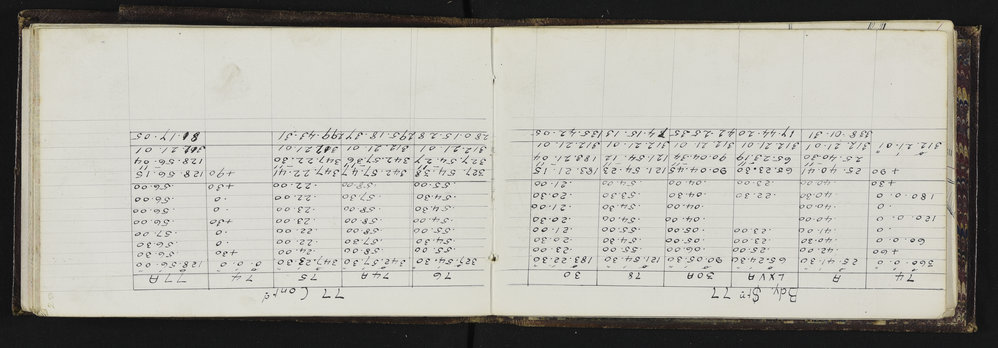 Bdy. Stn. 77
74 A LXVA 30A 78 30
360.0.0 25.41.30 65.24.30 90.05.30 121.54.30 183.22.30
+60 .42.00 .25.00 .06.00 .55.00 .23.00
60.0.0 .40.30 .23.00 .05.00 .54.30 .20.30
0 .41.00 .23.00 .05.00 .55.00 .21.00
120.0.0 .40.00 .04.00 .54.00 .20.30
0 .40.00 .04.00 .21.00
180.0.0 .40.30 22.30 .03.30 .54.30 .20.30
+30 .40.00 .23.00 .04.00 .54.00 .21.00
+90 25.40.41 65.23.30 90.04.45 121.54.23 183.21.15
25.40.30 65.23.19 90.04.34 121.54.12 183.21.04
312.21.01 312.21.01 312.21.01 312.21.01 312.21.01 312.21.01
338.01.31 17.44.20 42.25.35 74.15.13 135.42.05
77 Contd
76 74A 75 74 77A
327.54.30 342.57.30 347.23.30 0.0.0 128.56.00
.55.00 .58.00 .24.00 +30 .56.30
.54.30 .57.30 .22.00 .0 .57.00
.55.00 .58.00 .22.00 +30 .56.00
.54.30 .58.00 .23.00 .0 .56.00
.54.30 .57.30 .22.00 .0 .56.00
.55.00 .58.00 .22.00 +30 .56.00
327.54.38 342.57.47 347.22.41 +90 128.56.15
327.54.27 342.57.36 347.22.30 128.56.04
312.21.01 312.21.01 312.21.01 312.21.01
280.15.28 295.18.37 299.43.31 81.17.05